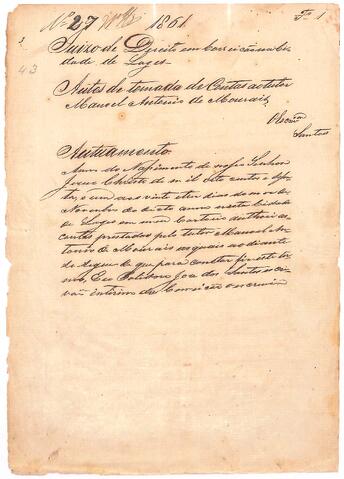 Nº 27 1861 Fs 1
43
Juizo de Direito em Correicão na Ci
dade de Lages
Autos de tomada de Contas ao tutor
Manoel Antonio de Morais
Escrᵃᵐ
Santos
Autuamento
Anno do Nascimento de nosso Senhor
Jesus Christo de mil oito centos e sess
enta, e um aos vinte dias do mes de
Novembro do dito anno nesta Cidade
de Lages em meu Cartorio as
contas prestadas pelo tutor Manoel An
tonio de Moraes as quais ao diante
se segue de que para constar fiz este ter
mo, Eu dos Santos escri
vão interino da Correição escrevi